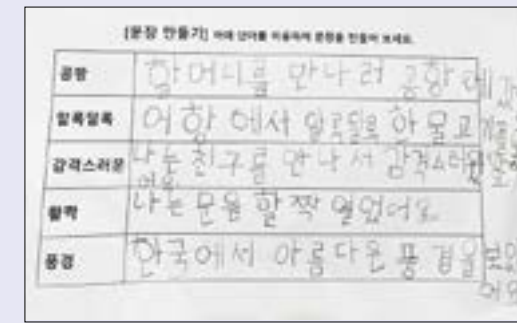 [문장 만들기] 아래 단어를 이용하여 문장을 만들어 보세요.
공항 할머니를 만나러 공항에 갔
알록달록 어항에서 알록달록 한 물고
감격스러운 나는 친구를 만나서 감격스러
어요
활짝 나는 문을 활짝 열었어요.
풍경 한국에서 아름다운 풍경을 보았
어요